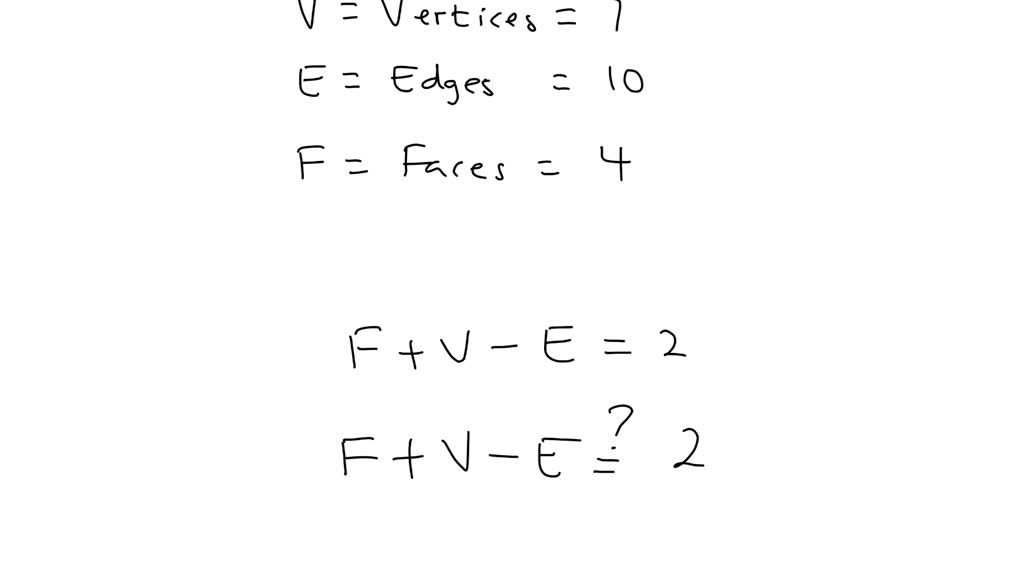 V = Vertices =
E = Edges = 10
F = Faces = 4
F + V - E = 2
F + V - E ≟ 2